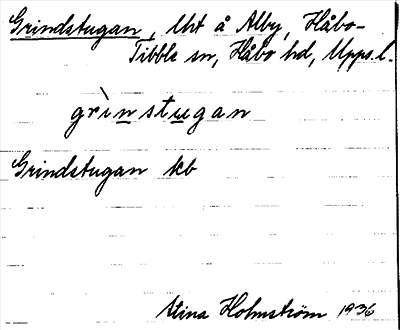 Grindstugan, Uht å Alby, Håbo-
Tibble sn, Håbo hd, Upps. l.
grìnstugan
Grindstugan kb
Stina Holmström 1936